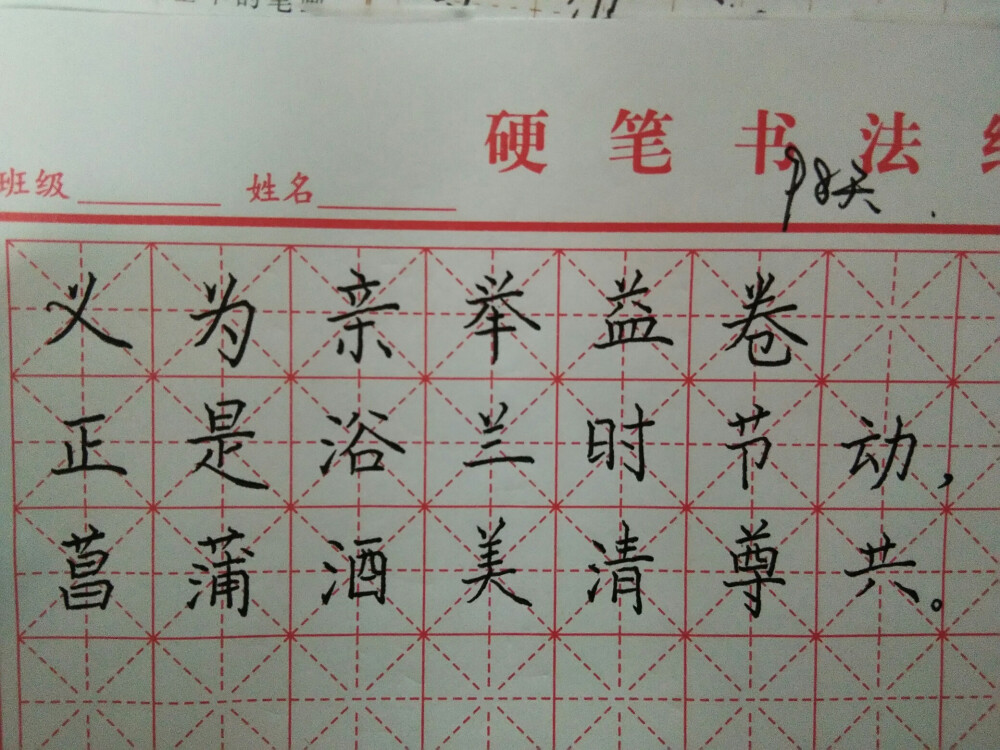 硬笔书法
班级 姓名
98天.
义为亲举益卷
正是浴兰时节动,
菖蒲酒美清尊共。